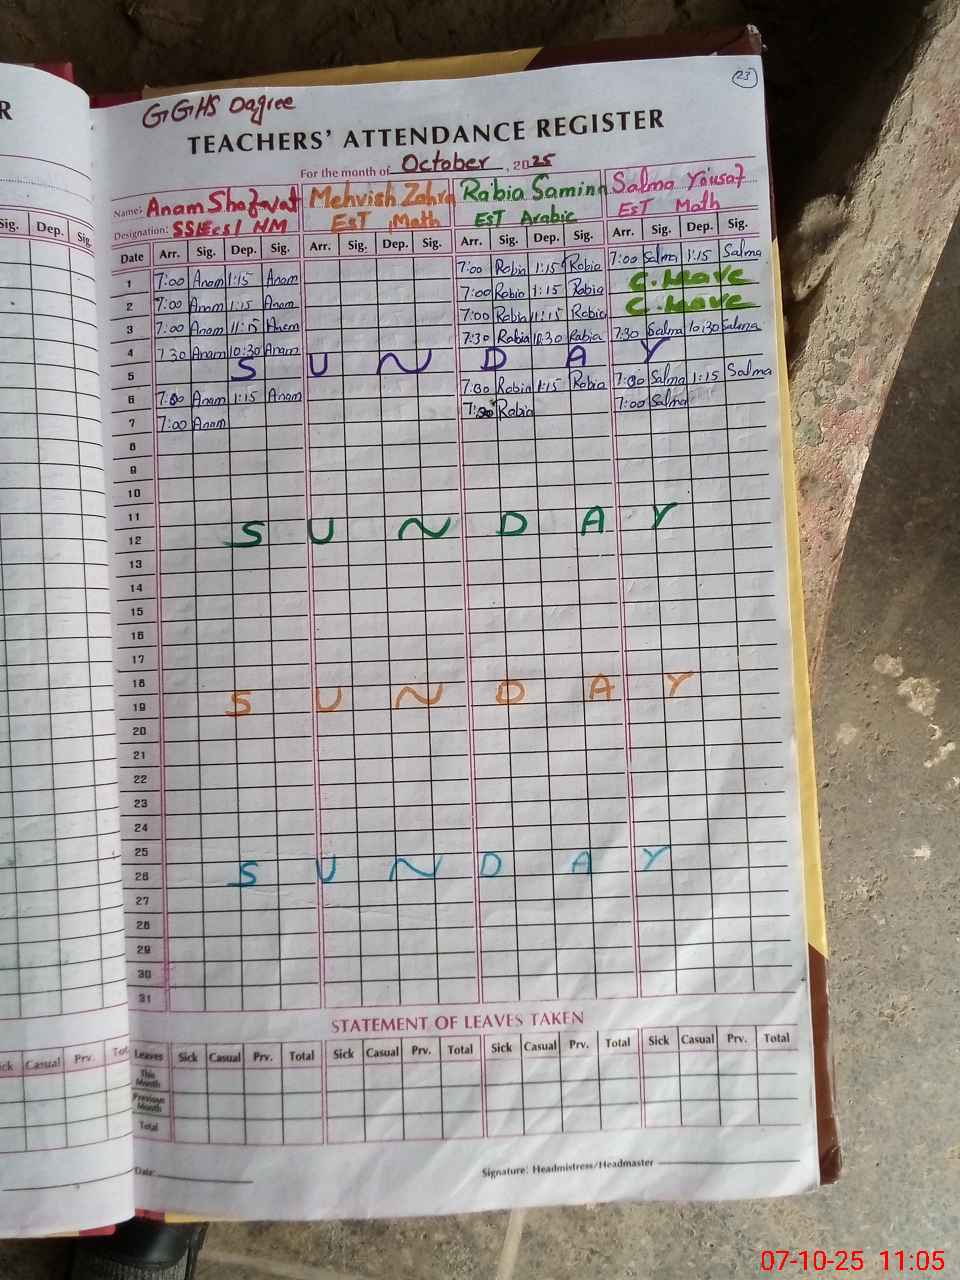 R
23
GGHS Dagree
TEACHERS' ATTENDANCE REGISTER
For the month of October, 2025
Name: Anam Shafawat Mehvish Zahra Rabia Samina Salma Yousaf
Designation: HM EST Math EST Arabic EST Math
Sig. Dep. Sig. Date Arr. Sig. Dep. Sig. Arr. Sig. Dep. Sig. Arr. Sig. Dep. Sig. Arr. Sig. Dep. Sig.
1 7:00 Anam 1:15 Anam 7:00 Rabia 1:15 Rabia 7:00 Salma 1:15 Salma
2 7:00 Anam 1:15 Anam 7:00 Rabia 1:15 Rabia C.leave
3 7:00 Anam 11:15 Anam 7:00 Rabia 11:15 Rabia C.leave
4 7:30 Anam 10:30 Anam 7:30 Rabia 10:30 Rabia 7:30 Salma 10:30 Salma
5 SUNDAY
6 7:00 Anam 1:15 Anam 7:00 Rabia 1:15 Rabia 7:00 Salma 1:15 Salma
7 7:00 Anam 7:00 Rabia 7:00 Salma
8
9
10
11
12 SUNDAY
13
14
15
16
17
18
19 SUNDAY
20
21
22
23
24
25
26 SUNDAY
27
28
29
30
31
STATEMENT OF LEAVES TAKEN
Sick Casual Prv. Tot Leaves Sick Casual Prv. Total Sick Casual Prv. Total Sick Casual Prv. Total Sick Casual Prv. Total
This Month
Previous Month
Total
Date: Signature: Headmistress/Headmaster
07-10-25 11:05